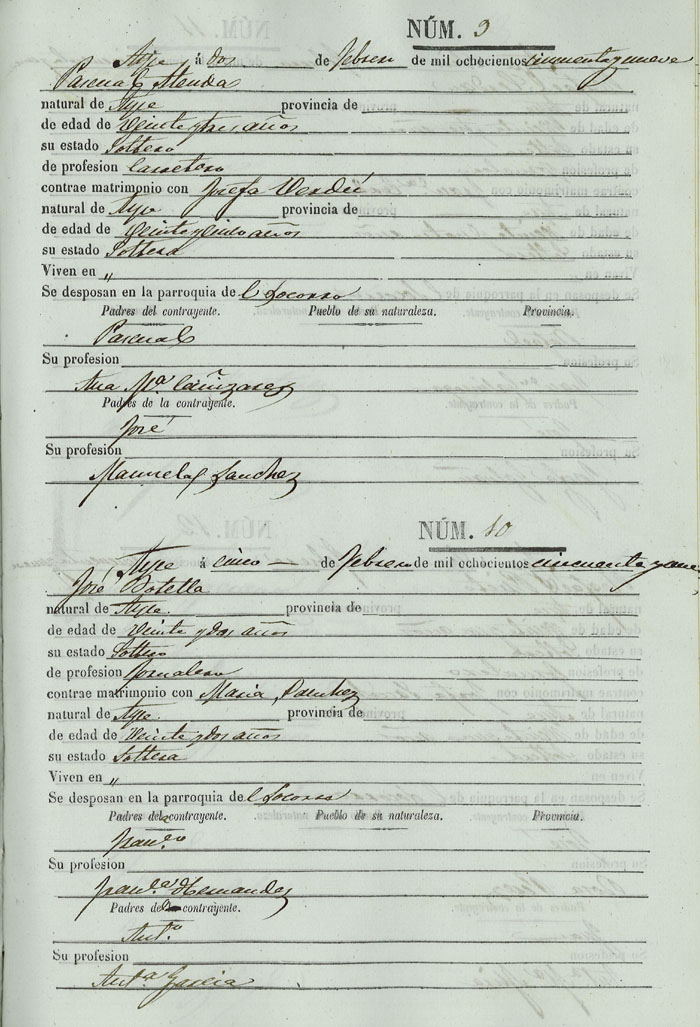 NÚM. 9
Aspe á dos de Febrero de mil ochocientos cincuenta y nueve
Pascual
natural de Aspe provincia de
de edad de Veinte y tres años
su estado Soltero
de profesion Carretero
contrae matrimonio con Josefa Verdú
natural de Aspe provincia de
de edad de Veinte y cinco años
su estado Soltera
Viven en "
Se desposan en la parroquia del Socorro
Padres del contrayente. Pueblo de su naturaleza. Provincia.
Pascual
Su profesion
Ana Mª Cañizares
Padres de la contrayente.
José
Su profesión
Manuela Sanchez
NÚM. 10
Aspe á cinco — de Febrero de mil ochocientos cincuenta y nueve
José Botella
natural de Aspe provincia de
de edad de Veinte y dos años
su estado Soltero
de profesion Jornalero
contrae matrimonio con Maria Sanchez
natural de Aspe provincia de
de edad de Veinte y dos años
su estado Soltera
Viven en "
Se desposan en la parroquia del Socorro
Padres del contrayente. Pueblo de su naturaleza. Provincia.
Franco
Su profesion
Franca Hernandez
Padres de la contrayente.
Anto
Su profesion
Anta Garcia